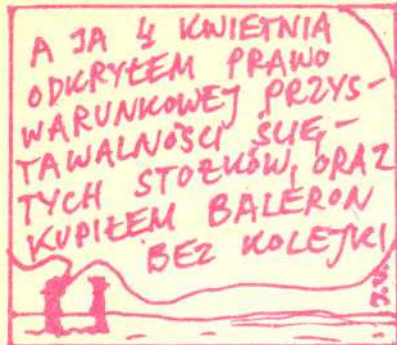 A JA 4 KWIETNIA
ODKRYŁEM PRAWO
WARUNKOWEJ PRZYS-
TAWALNOŚCI ŚCIĘ-
TYCH STOŻKÓW, ORAZ
KUPIŁEM BALERON
BEZ KOLEJKI